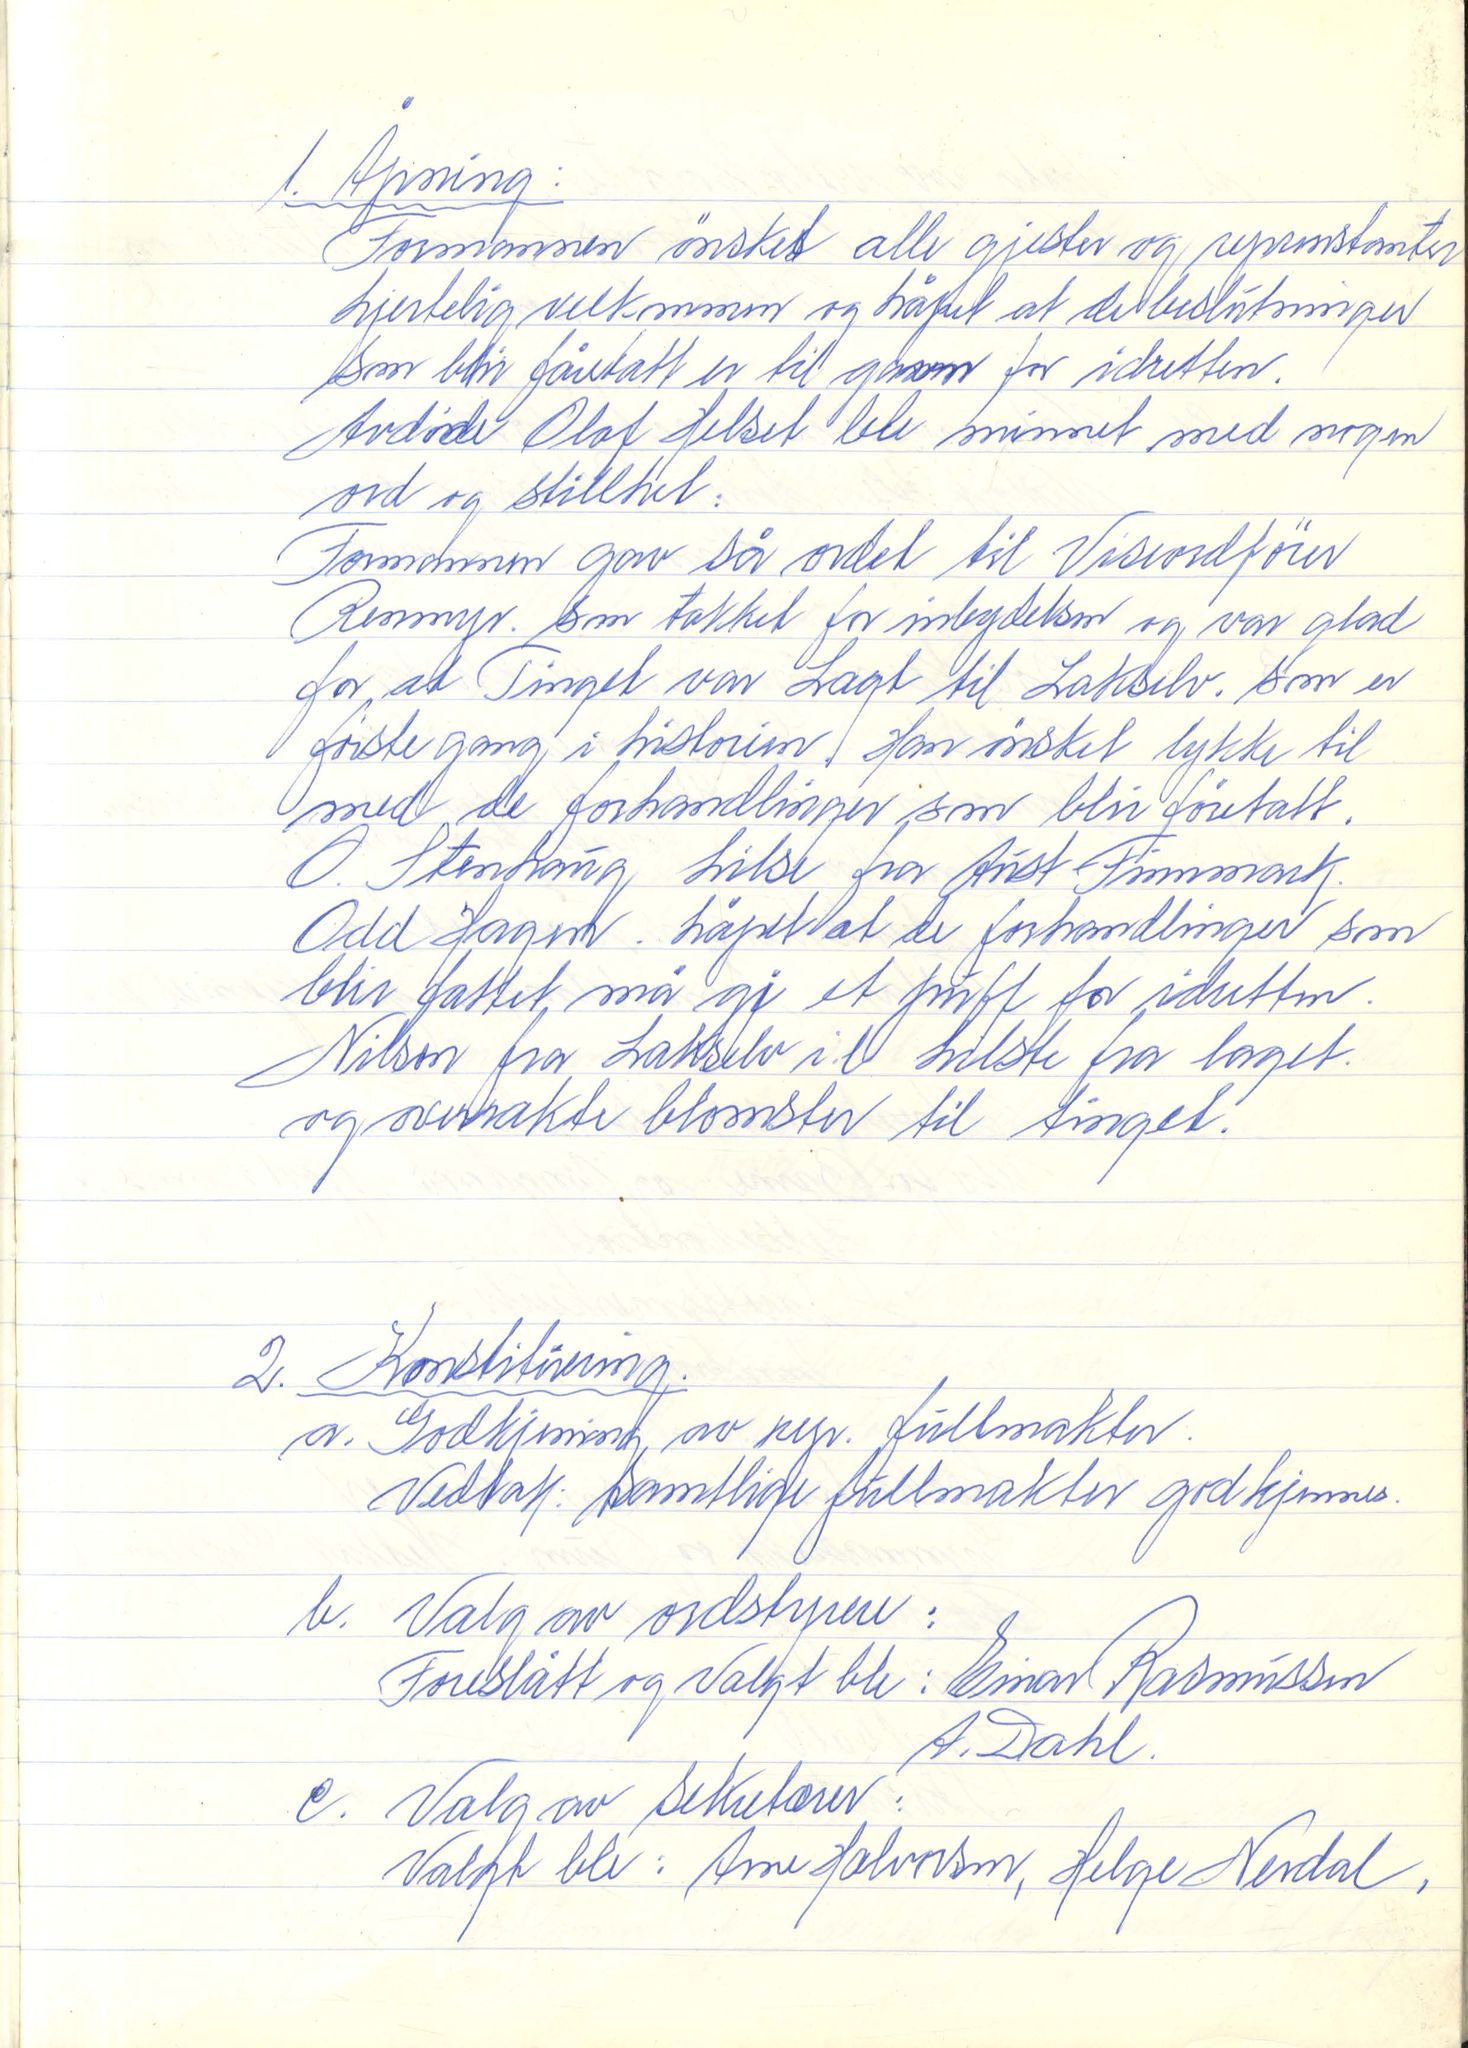 1. Åpning:
Formannen önsket alle gjester og reprenstanter
hjertelig velkommen og håpet at de beslutninger
som blir fåretatt er til gavn for idretten.
Avdöde Olaf Helset ble minnet med nogen
ord og stillhet.
Formannen gav så ordet til Viseordförer
Renmyr. som takket for inbydelsen og var glad
for at Tinget var Lagt til Lakselv. som er
förste gang i historien. Han önsket lykke til
med de forhandlinger som blirföretatt.
O. Stenhaug hilse fra Aust-Finnmark.
Odd Hagen. håpet at de forhandlinger som
blir fattet må gi et puff for idretten.
Nilsen fra Lakselv i.l hilste fra laget.
og overrakte blomster til tinget.
2. Konstituering.
a. Godkjening av repr. fullmakter.
Vedtak: Samtlige fullmakter godkjennes.
b. Valg av ordstyrere:
Foreslått og Valgt ble: Einar Rasmussen
A. Dahl.
c. Valg av sekretærer:
Valgt ble: Arne Halvorsen, Helge Nerdal,